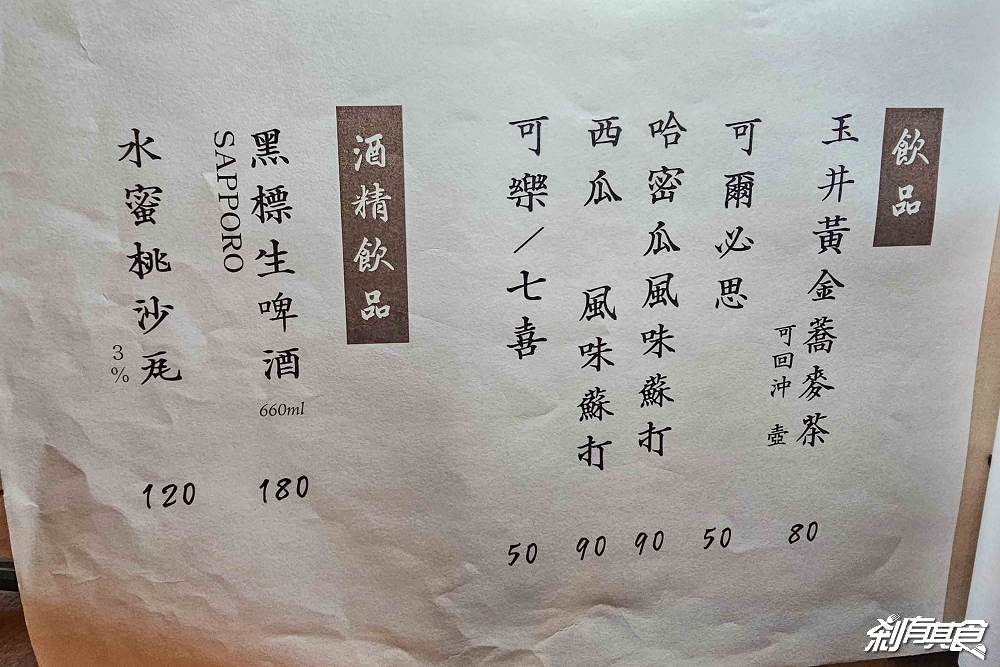 飲品
玉井黃金蕎麥茶
可回沖 壺
80
可爾必思
50
哈密瓜風味蘇打
90
西瓜 風味蘇打
90
可樂／七喜
50
酒精飲品
黑標生啤酒
660ml
SAPPORO
180
水蜜桃沙瓦
3%
120
剎有其食